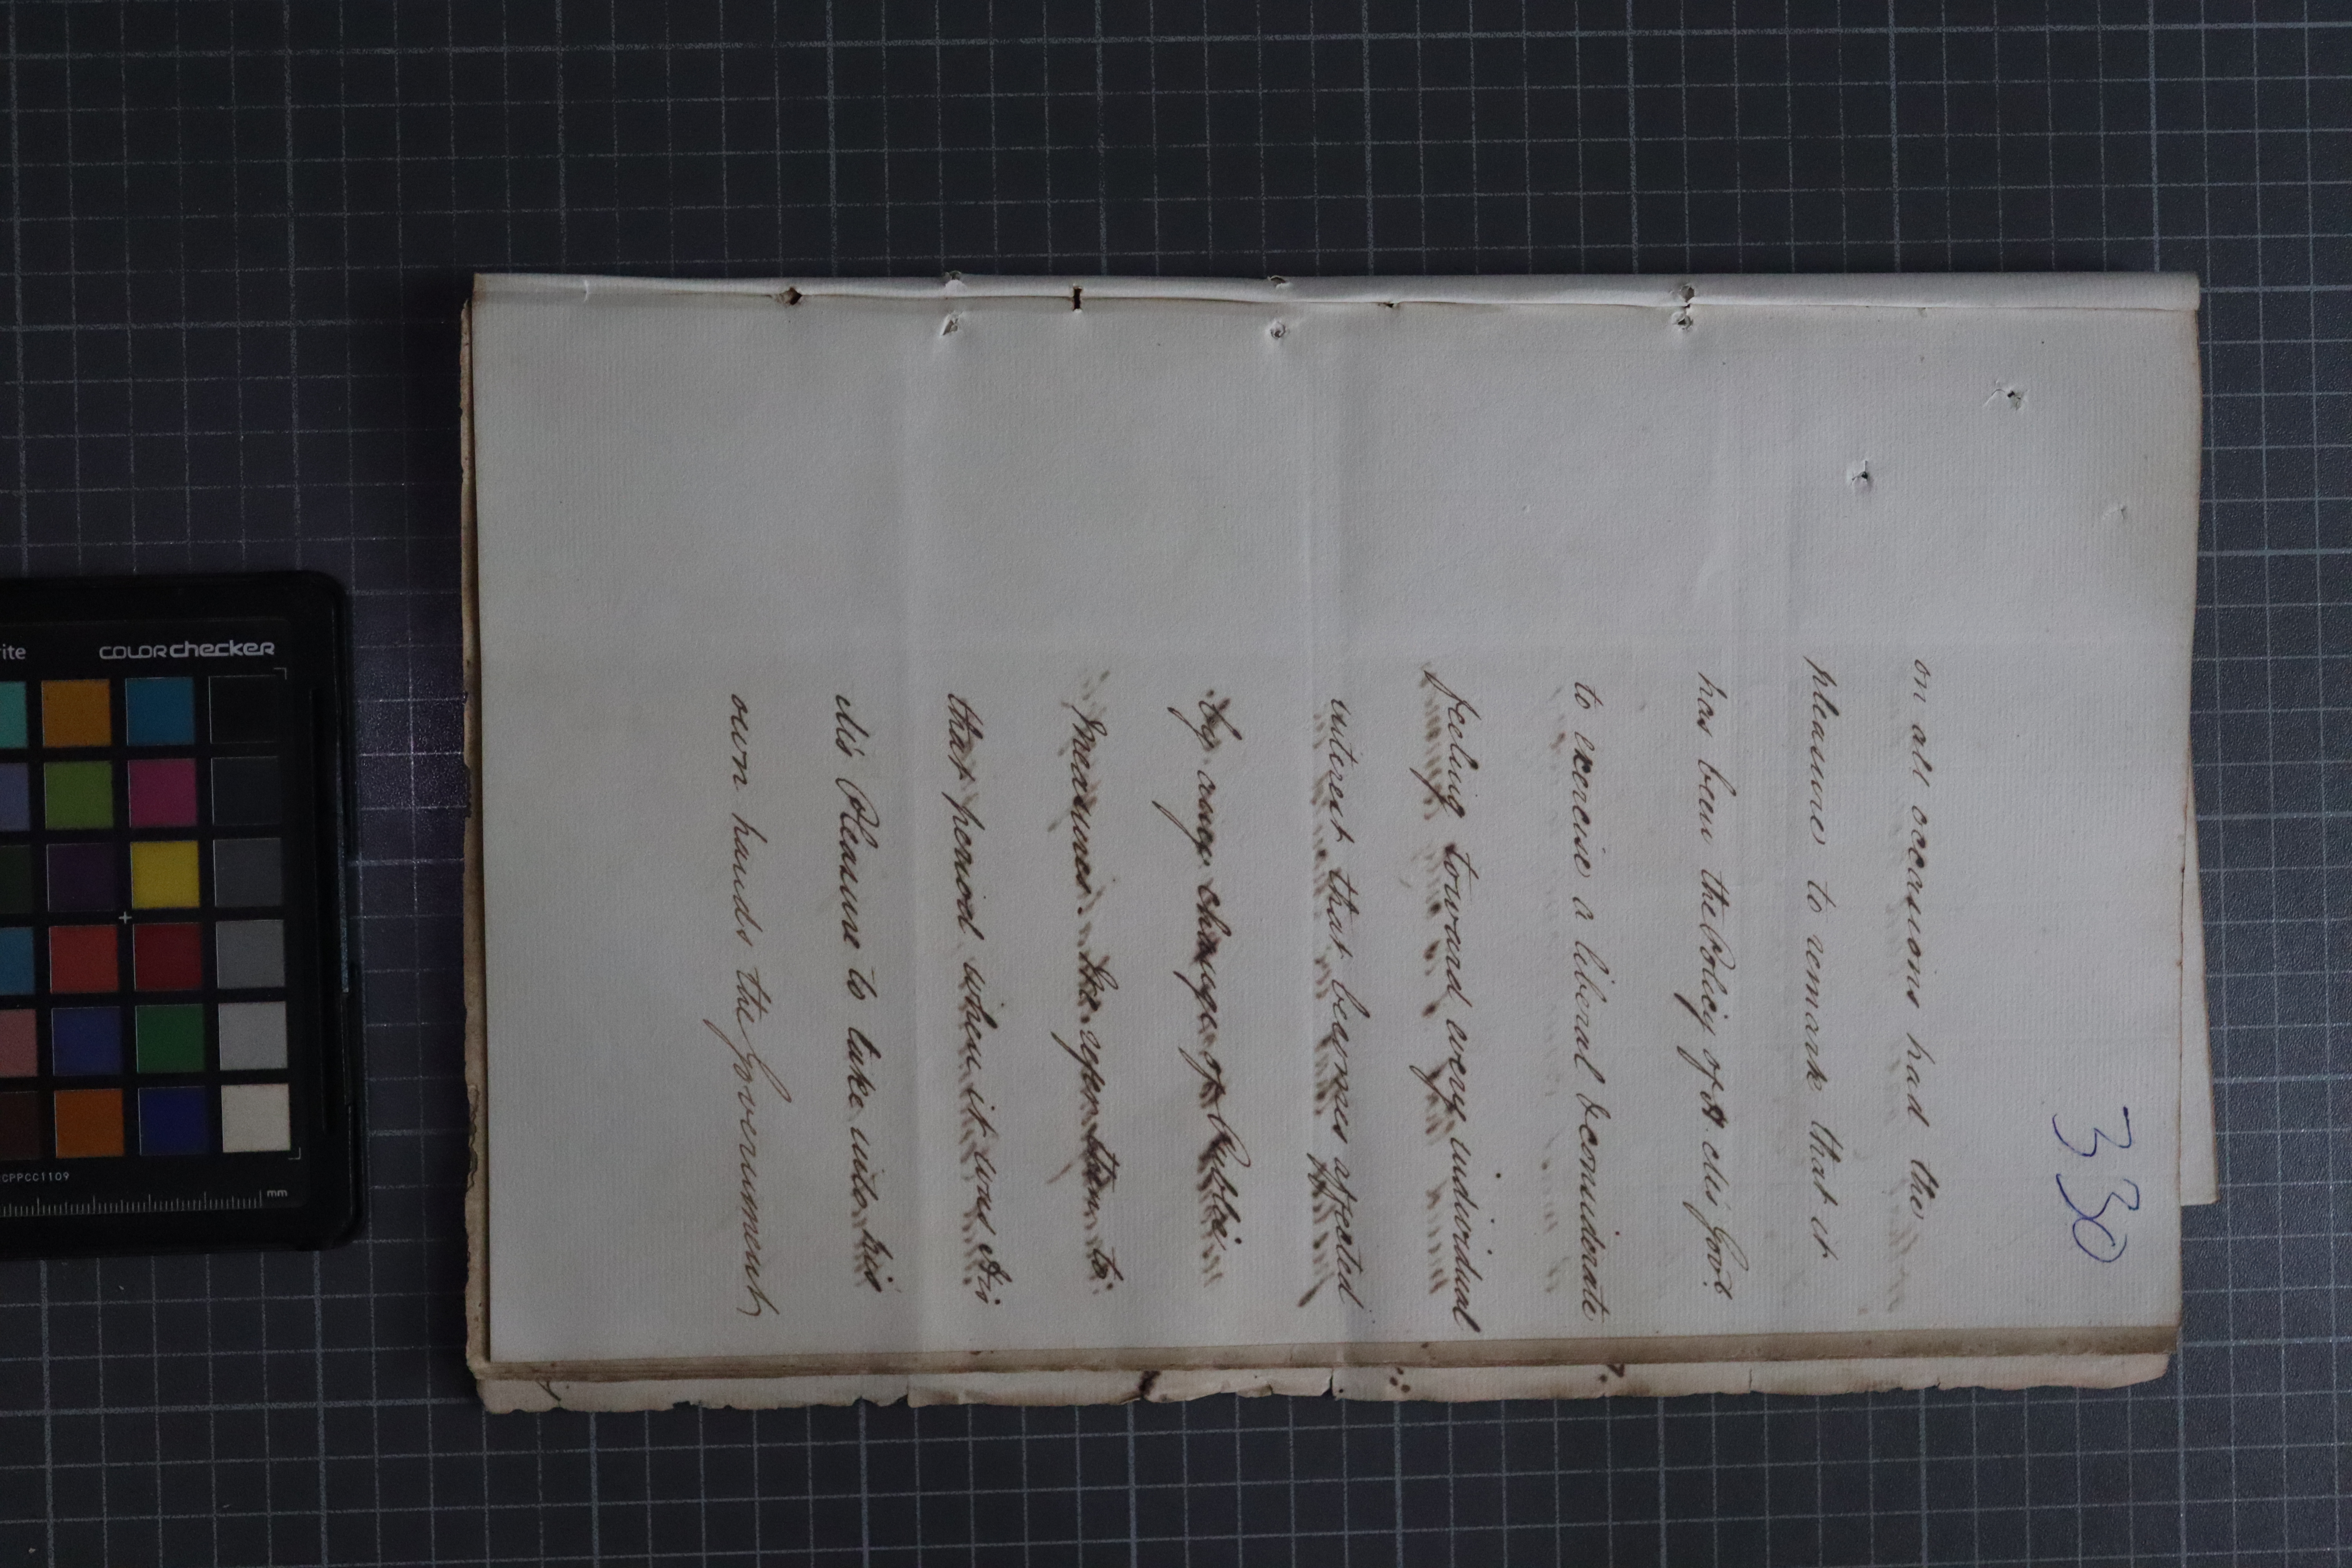 330
on all occasions had the
pleasure to remark that it
has been the Policy of H. M's Govt.
to exercise a liberal & considerate
feeling toward every individual
interest that becomes affected
by any change of Public
Measures. He refers them to
that period when it was His
M's Pleasure to take into his
own hands the Government
rite
COLORchecker
CPPCC1109
mm